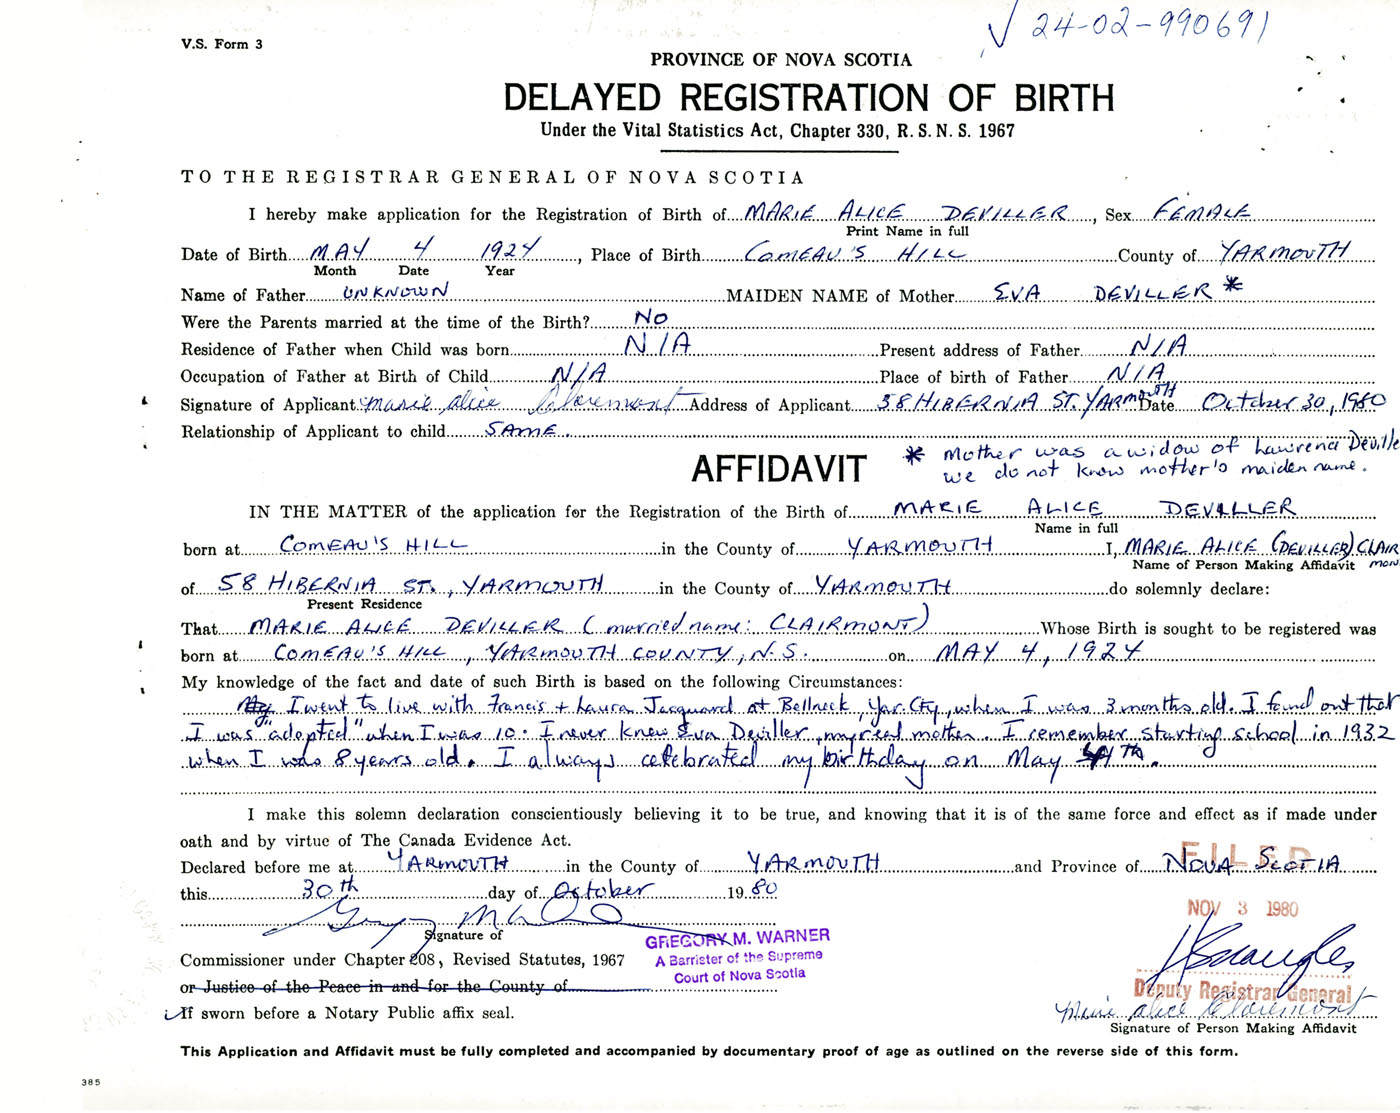 √ 24-02-990691
V.S. Form 3
PROVINCE OF NOVA SCOTIA
DELAYED REGISTRATION OF BIRTH
Under the Vital Statistics Act, Chapter 330, R. S. N. S. 1967
TO THE REGISTRAR GENERAL OF NOVA SCOTIA
I hereby make application for the Registration of Birth of MARIE ALICE DEVILLER, Sex FEMALE
Print Name in full
Date of Birth MAY 4 1924, Place of Birth COMEAU'S HILL County of YARMOUTH
Month Date Year
Name of Father UNKNOWN MAIDEN NAME of Mother EVA DEVILLER *
Were the Parents married at the time of the Birth? NO
Residence of Father when Child was born N/A Present address of Father N/A
Occupation of Father at Birth of Child N/A Place of birth of Father N/A
Signature of Applicant Marie Alice Claremont Address of Applicant 58 HIBERNIA ST. YARMOUTH Date October 30, 1980
Relationship of Applicant to child SAME.
* Mother was a widow of Lawrence Deville
AFFIDAVIT we do not know mother's maiden name.
IN THE MATTER of the application for the Registration of the Birth of MARIE ALICE DEVILLER
Name in full
born at COMEAU'S HILL in the County of YARMOUTH I, MARIE ALICE (DEVILLER) CLAIR
Name of Person Making Affidavit MON
of 58 HIBERNIA ST., YARMOUTH in the County of YARMOUTH do solemnly declare:
Present Residence
That MARIE ALICE DEVILLER (married name: CLAIRMONT) Whose Birth is sought to be registered was
born at COMEAU'S HILL, YARMOUTH COUNTY, N.S. on MAY 4, 1924
My knowledge of the fact and date of such Birth is based on the following Circumstances:
My I went to live with Francis + Laura Jacquard at Bellneck, Yar. Cty, when I was 3 months old. I found out that
I was "adopted" when I was 10. I never knew Eva Deviller, my real mother. I remember starting school in 1932
when I was 8 years old. I always celebrated my birthday on May 4th.
I make this solemn declaration conscientiously believing it to be true, and knowing that it is of the same force and effect as if made under
oath and by virtue of The Canada Evidence Act.
Declared before me at YARMOUTH in the County of YARMOUTH and Province of NOVA SCOTIA
FILED
this 30th day of October 1980
NOV 3 1980
Signature of
GREGORY M. WARNER
A Barrister of the Supreme
Court of Nova Scotia
Commissioner under Chapter 208, Revised Statutes, 1967
or Justice of the Peace in and for the County of
Deputy Registrar General
Marie Alice Claremont
If sworn before a Notary Public affix seal.
Signature of Person Making Affidavit
This Application and Affidavit must be fully completed and accompanied by documentary proof of age as outlined on the reverse side of this form.
385